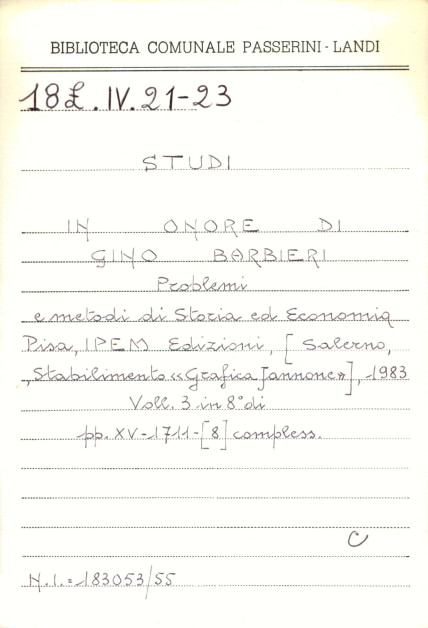 BIBLIOTECA COMUNALE PASSERINI - LANDI
18£.IV.21-23
STUDI
IN ONORE DI
GINO BARBIERI
Problemi
e metodi di Storia ed Economia
Pisa, IPEM Edizioni, [Salerno,
Stabilimento «Grafica Jannone»], 1983
Voll. 3 in 8° di
pp. XV-1711-[8] compless.
C
N.I.=183053/55